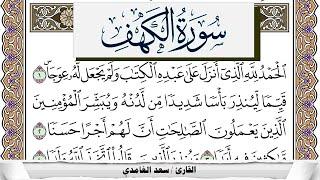 سُورَةُ الكَهْفِ
الْحَمْدُ لِلَّهِ الَّذِي أَنزَلَ عَلَىٰ عَبْدِهِ الْكِتَٰبَ وَلَمْ يَجْعَل لَّهُ عِوَجَا ۜ ١
قَيِّمًا لِّيُنذِرَ بَأْسًا شَدِيدًا مِّن لَّدُنْهُ وَيُبَشِّرَ الْمُؤْمِنِينَ
الَّذِينَ يَعْمَلُونَ الصَّٰلِحَٰتِ أَنَّ لَهُمْ أَجْرًا حَسَنًا ٢
القارئ / سعد الغامدي